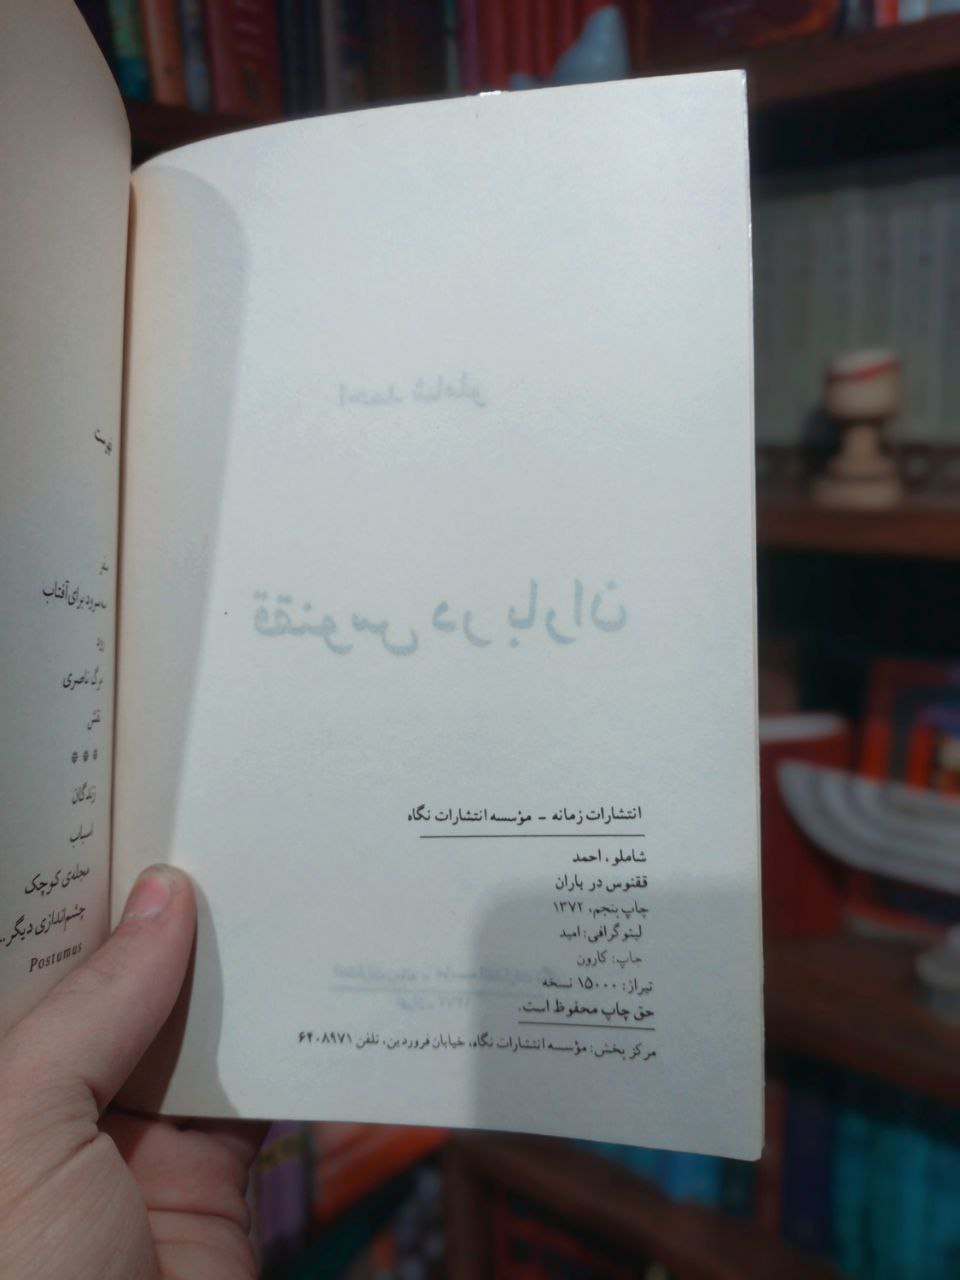 انتشارات زمانه - مؤسسه انتشارات نگاه
شاملو، احمد
ققنوس در باران
چاپ پنجم، ۱۳۷۲
لیتوگرافی: امید
چاپ: کارون
تیراژ: ۱۵۰۰۰ نسخه
حق چاپ محفوظ است.
مرکز پخش: مؤسسه انتشارات نگاه، خیابان فروردین، تلفن ۶۴۰۸۹۷۱
احمد شاملو
ققنوس در باران
سفر
سه سرود برای آفتاب
رود
مرگ ناصری
نقش
***
زندگان
اسباب
مجله‌ی کوچک
چشم‌اندازی دیگر...
Postumus